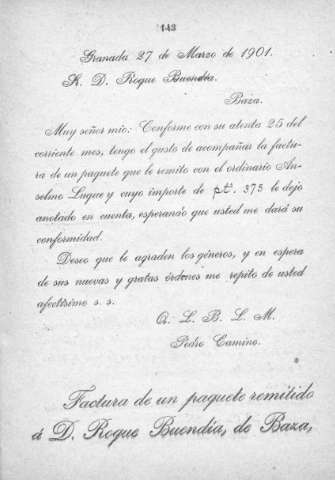 143
Granada 27 de Marzo de 1901.
S. D. Roque Buendía.
Baza.
Muy señor mio: Conforme con su atenta 25 del
corriente mes, tengo el gusto de acompañar la factu-
ra de un paquete que le remito con el ordinario An-
selmo Luque y cuyo importe de pt. 373 le dejo
anotado en cuenta, esperando que usted me dará su
conformidad.
Deseo que le agraden los géneros, y en espera
de sus nuevas y gratas órdenes me repito de usted
afectísimo s. s.
Q. L. B. L. M.
Pedro Camino.
Factura de un paquete remitido
á D. Roque Buendía, de Baza,